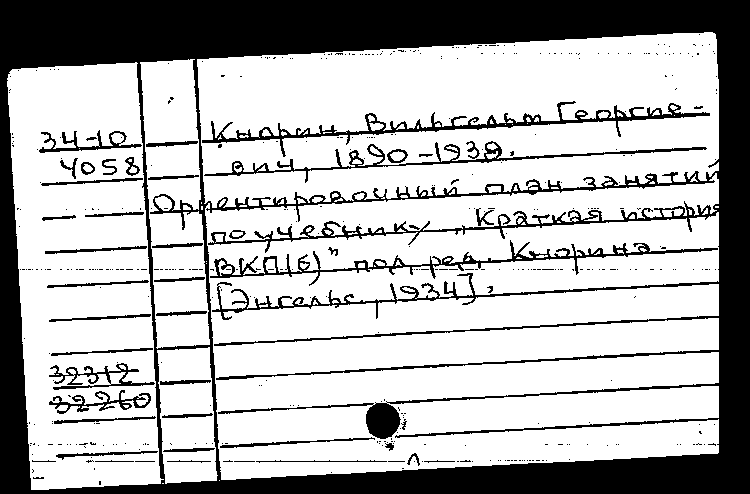 34-10 Кнорин, Вильгельм Георгие-
4058 вич, 1890-1939.
Ориентировочный план занятий
по учебнику „Краткая история
ВКП(б)" под ред. Кнорина.
[Энгельс, 1934].
32312
32260